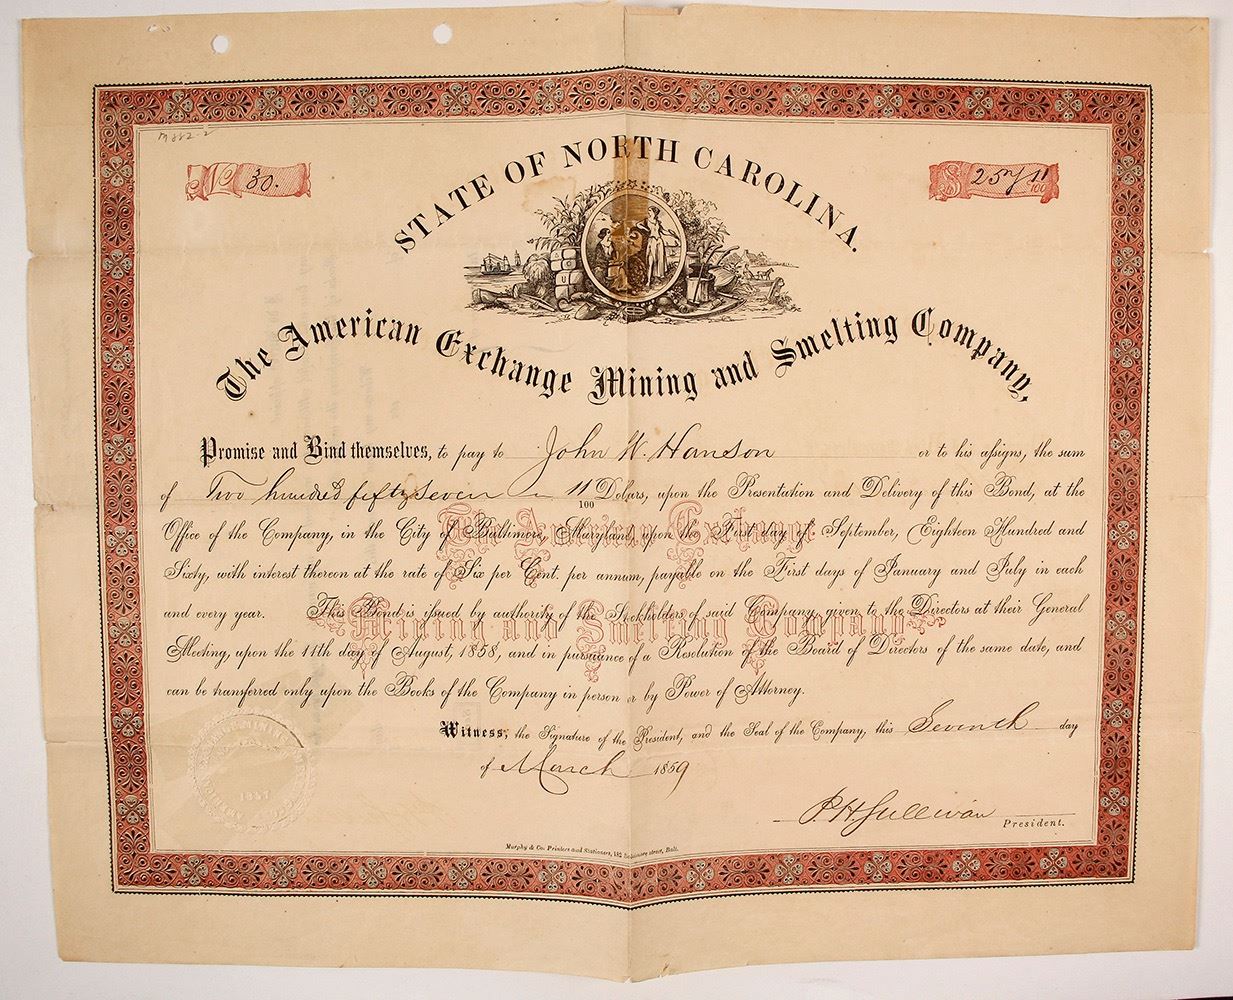 M 222-2
No 30.
$ 257 11/100
STATE OF NORTH CAROLINA.
The American Exchange Mining and Smelting Company,
Promise and Bind themselves, to pay to John W. Hanson or to his assigns, the sum
of Two hundred fifty seven 11/100 Dollars, upon the Presentation and Delivery of this Bond, at the
Office of the Company, in the City of Baltimore, Maryland, upon the First day of September, Eighteen Hundred and
Sixty, with interest thereon at the rate of Six per Cent. per annum, payable on the First days of January and July in each
and every year. This Bond is issued by authority of the Stockholders of said Company, given to the Directors at their General
Meeting, upon the 11th day of August, 1858, and in pursuance of a Resolution of the Board of Directors of the same date, and
can be transferred only upon the Books of the Company in person or by Power of Attorney.
The American Exchange
Mining and Smelting Company
Witness, the Signature of the President, and the Seal of the Company, this Seventh day
of March 1859
P. H. Sullivan President.
1857
Murphy & Co. Printers and Stationers, 182 Baltimore street, Balt.